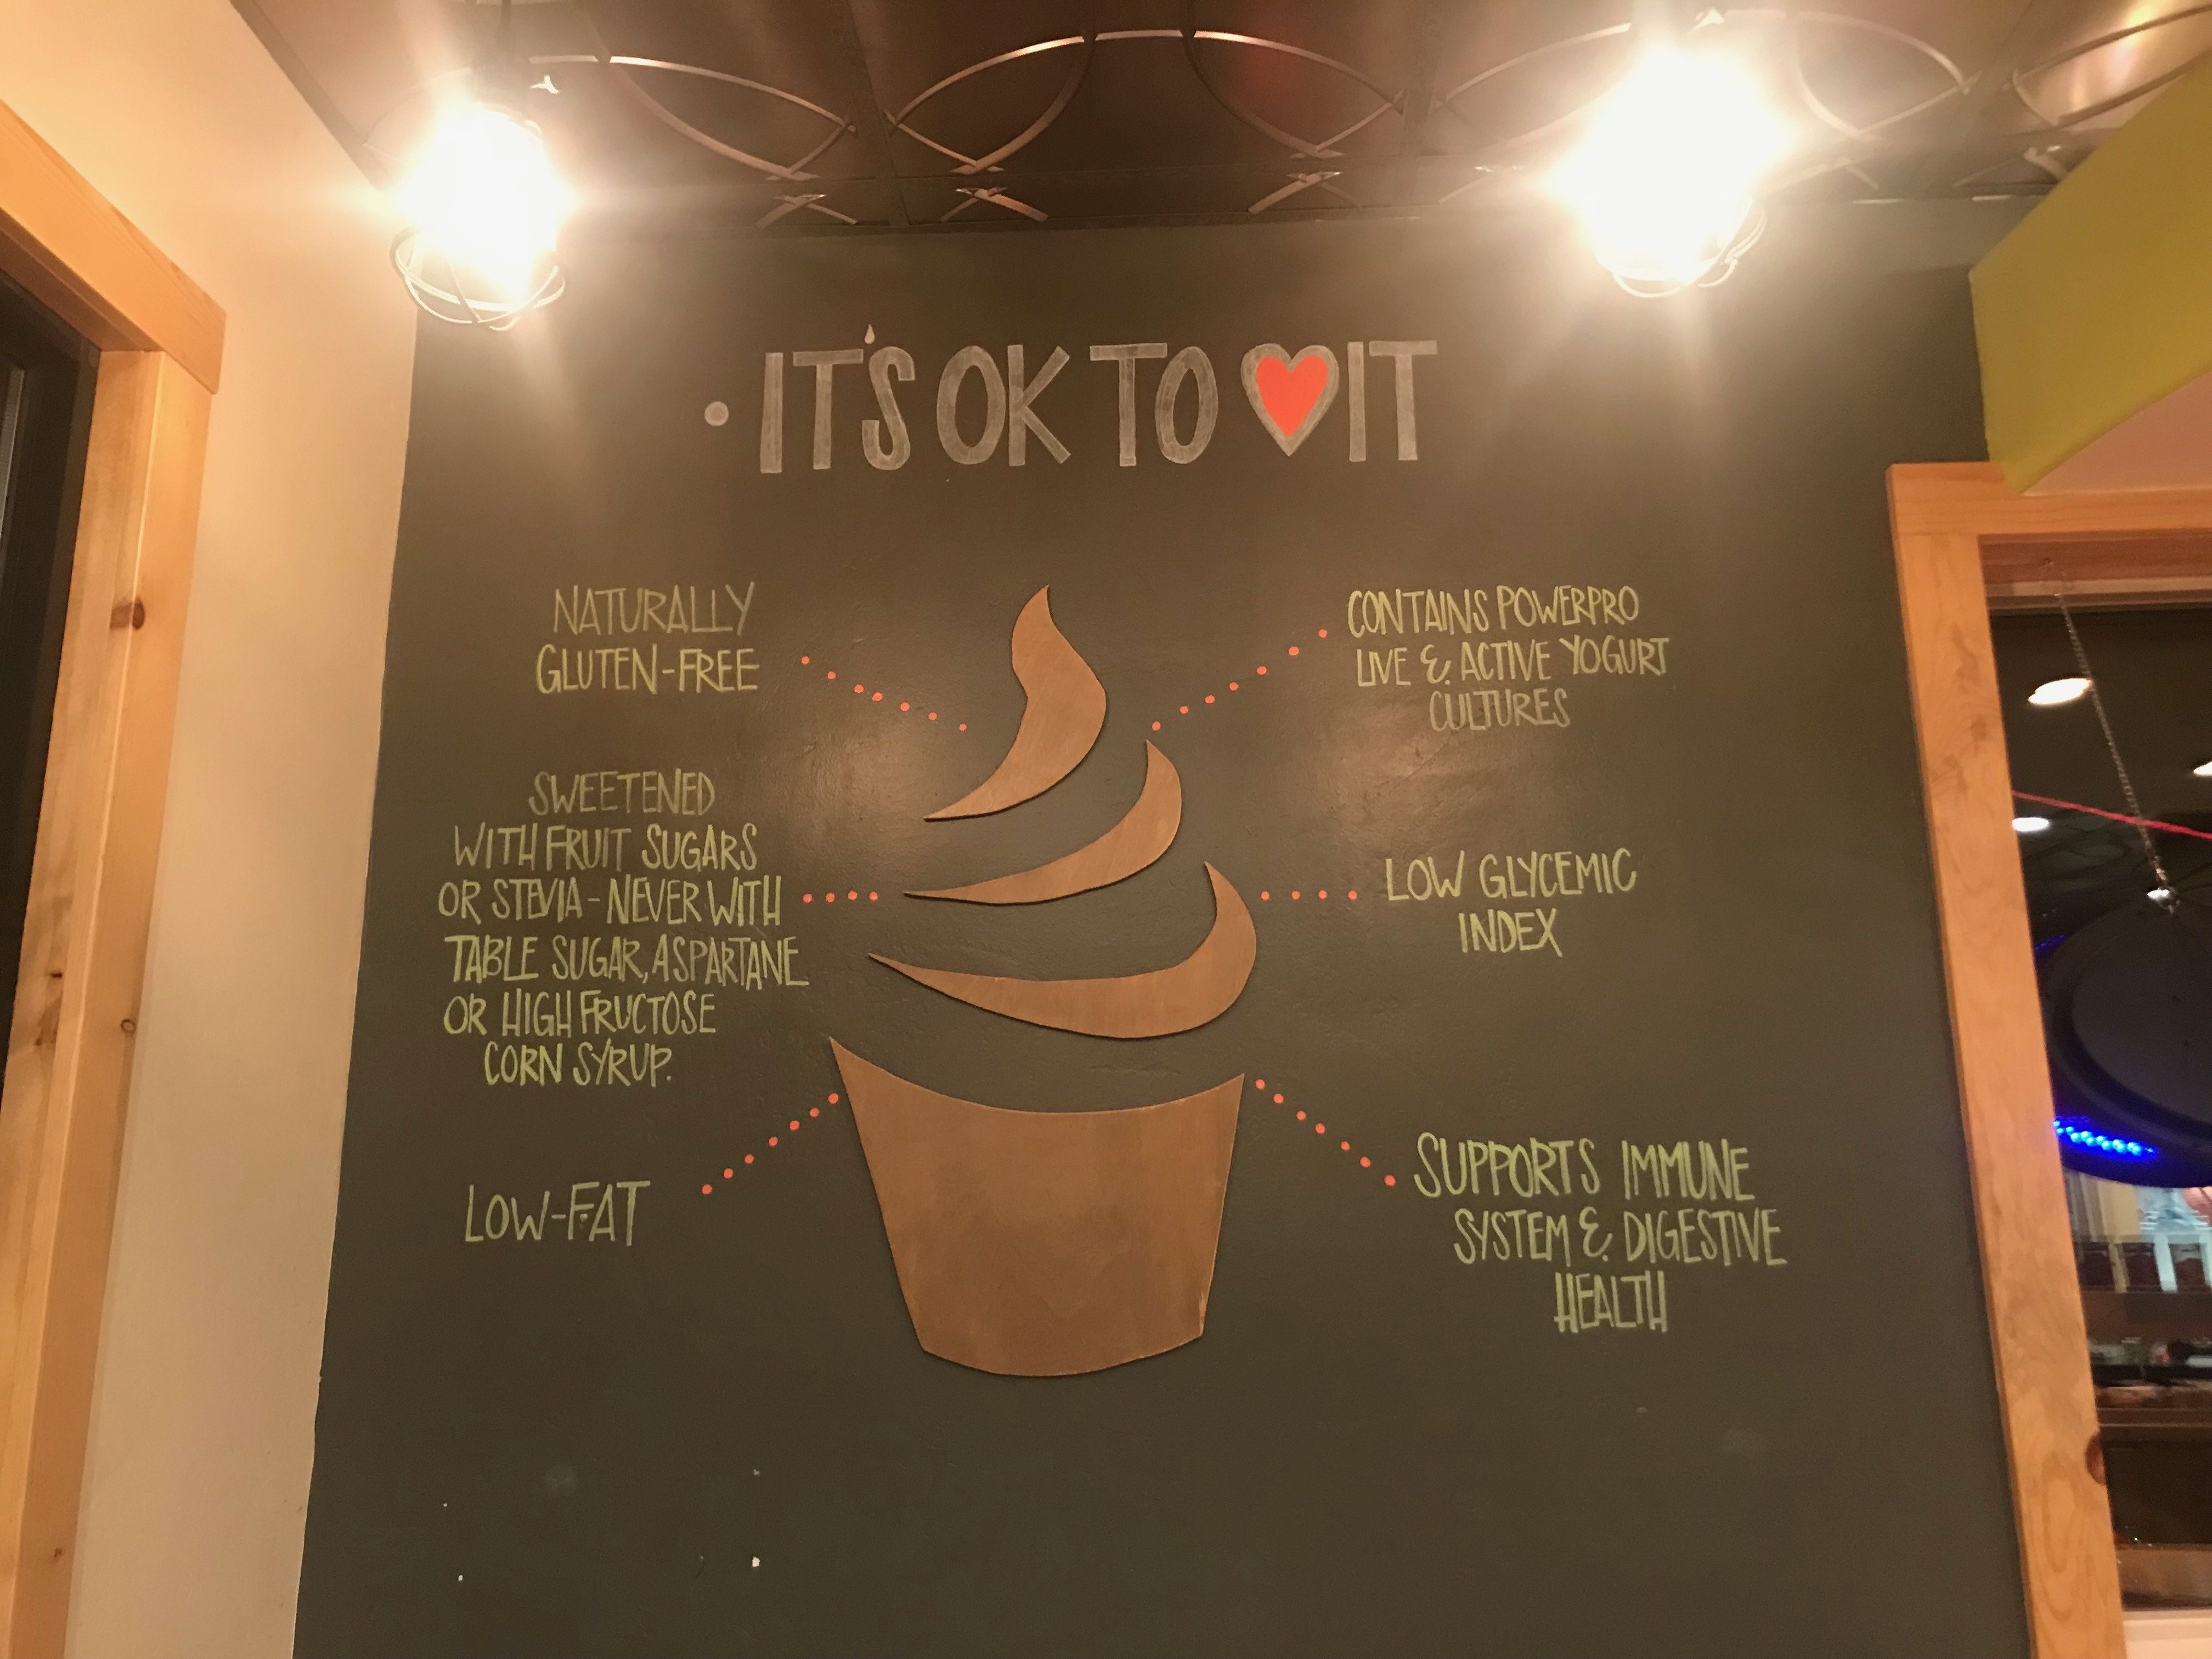 • IT'S OK TO ♥ IT
NATURALLY
GLUTEN-FREE
SWEETENED
WITH FRUIT SUGARS
OR STEVIA - NEVER WITH
TABLE SUGAR, ASPARTANE
OR HIGH FRUCTOSE
CORN SYRUP.
LOW-FAT
CONTAINS POWERPRO
LIVE & ACTIVE YOGURT
CULTURES
LOW GLYCEMIC
INDEX
SUPPORTS IMMUNE
SYSTEM & DIGESTIVE
HEALTH